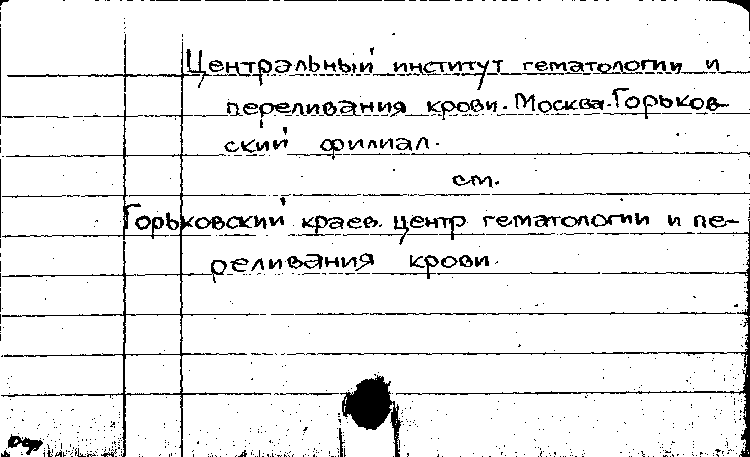 Центральный институт гематологии и
переливания крови. Москва. Горьков-
ский филиал.
см.
Горьковский краев. центр гематологии и пе-
реливания крови.